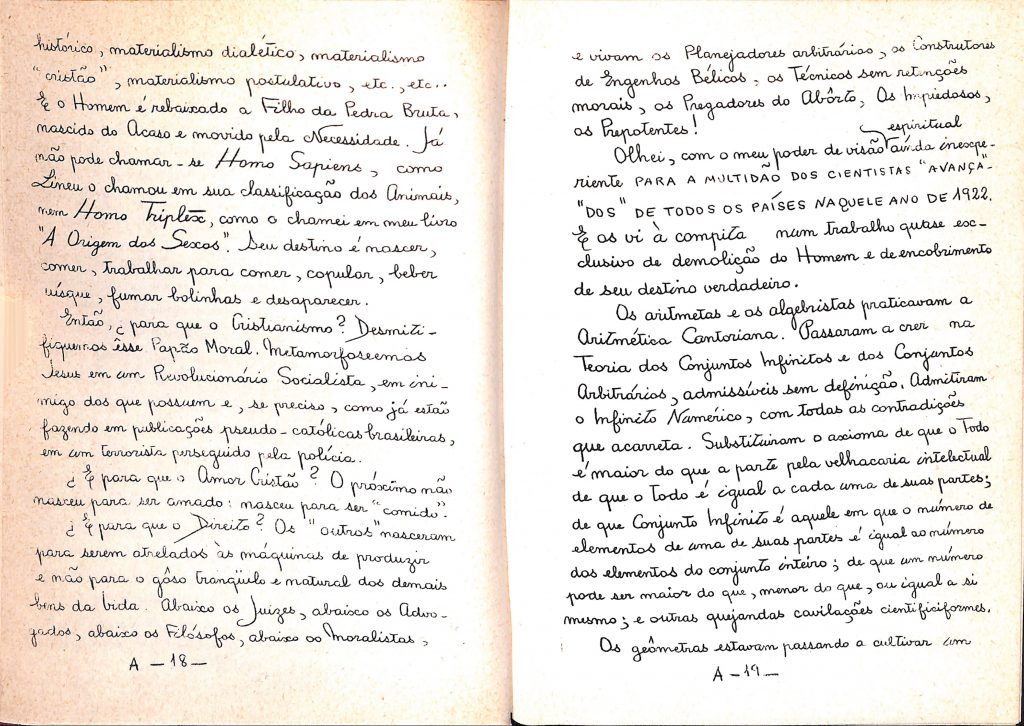 histórico, materialismo dialético, materialismo
"cristão", materialismo postulativo, etc., etc..
E o Homem é rebaixado a Filho da Pedra Bruta,
nascido do Acaso e movido pela Necessidade. Já
não pode chamar-se Homo Sapiens, como
Lineu o chamou em sua classificação dos Animais,
nem Homo Triplex, como o chamei em meu livro
"A Origem dos Sexos". Seu destino é nascer,
comer, trabalhar para comer, copular, beber
uísque, fumar bolinhas e desaparecer.
Então, ¿ para que o Cristianismo? Desmiti-
fiquemos êsse Papão Moral. Metamorfoseemos
Jesus em um Revolucionário Socialista, em ini-
migo dos que possuem e, se preciso, como já estão
fazendo em publicações pseudo-católicas brasileiras,
em um terrorista perseguido pela polícia.
¿ E para que o Amor Cristão? O próximo não
nasceu para ser amado: nasceu para ser "comido".
¿ E para que o Direito? Os "outros" nasceram
para serem atrelados às máquinas de produzir
e não para o gôso tranqüilo e natural dos demais
bens da Vida. Abaixo os Juizes, abaixo os Advo-
gados, abaixo os Filósofos, abaixo os Moralistas,
A - 18 -
e vivam os Planejadores arbitrários, os Construtores
de Engenhos Bélicos, os Técnicos sem retenções
morais, os Pregadores do Abôrto, Os Impiedosos,
os Prepotentes!
espiritual
Olhei, com o meu poder de visão ainda inexpe-
riente PARA A MULTIDÃO DOS CIENTISTAS "AVANÇA-
"DOS" DE TODOS OS PAÍSES NAQUELE ANO DE 1922.
E os vi à compita num trabalho quase exc-
clusivo de demolição do Homem e de encobrimento
de seu destino verdadeiro.
Os aritmetas e os algebristas praticavam a
Aritmética Cantoriana. Passaram a crer na
Teoria dos Conjuntos Infinitos e dos Conjuntos
Arbitrários, admissíveis sem definição. Admitiram
o Infinito Numérico, com todas as contradições
que acarreta. Substituiram o axioma de que o Todo
é maior do que a parte pela velhacaria intelectual
de que o Todo é igual a cada uma de suas partes;
de que Conjunto Infinito é aquele em que o número de
elementos de uma de suas partes é igual ao número
dos elementos do conjunto inteiro; de que um número
pode ser maior do que, menor do que, ou igual a si
mesmo; e outras quejandas cavilações cientificiformes.
Os geômetras estavam passando a cultivar um
A - 19 -